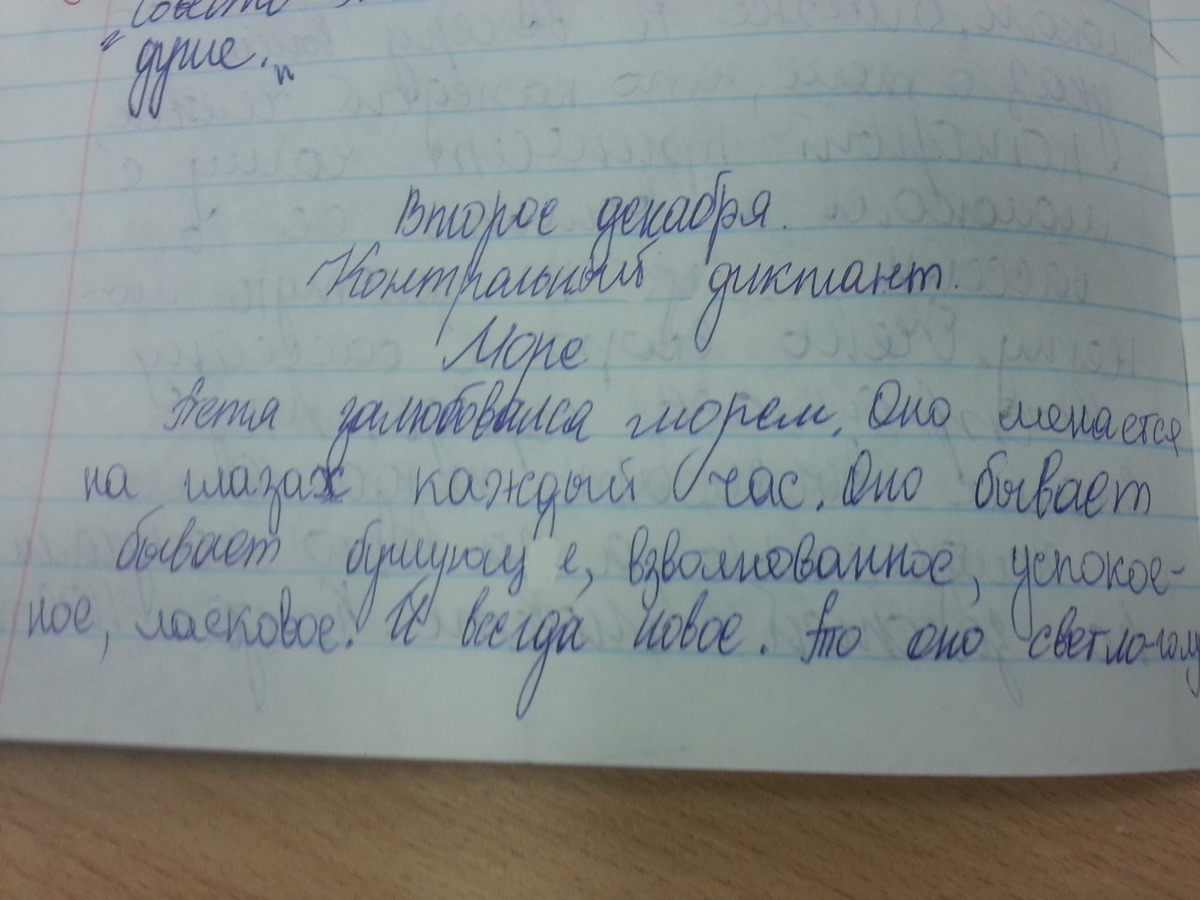 душе."
Второе декабря.
Контрольный диктант.
Море
Петя залюбовался морем. Оно менается
на глазах каждый час. Оно бывает
бывает бушующее, взволнованное, успокое-
ное, ласковое. И всегда новое. То оно светло-голу